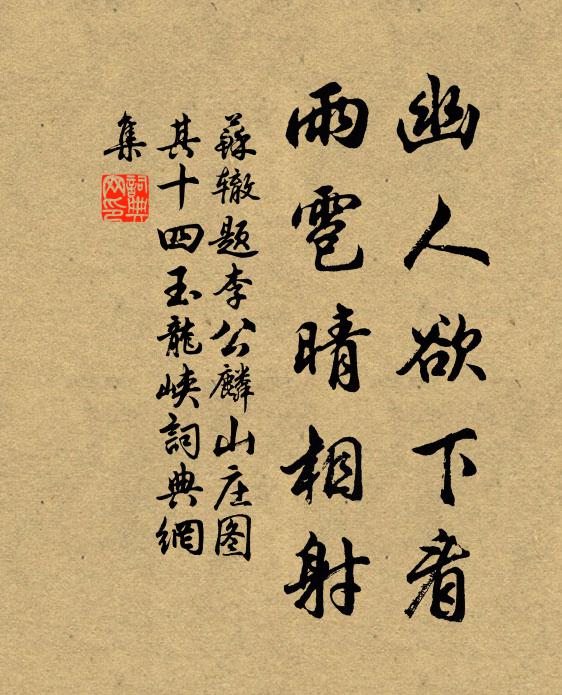 幽人欲下者
雨雹晴相射
蘇辙题李公麟山庄图
其十四玉龍峡詞典網
集
詞典
网印